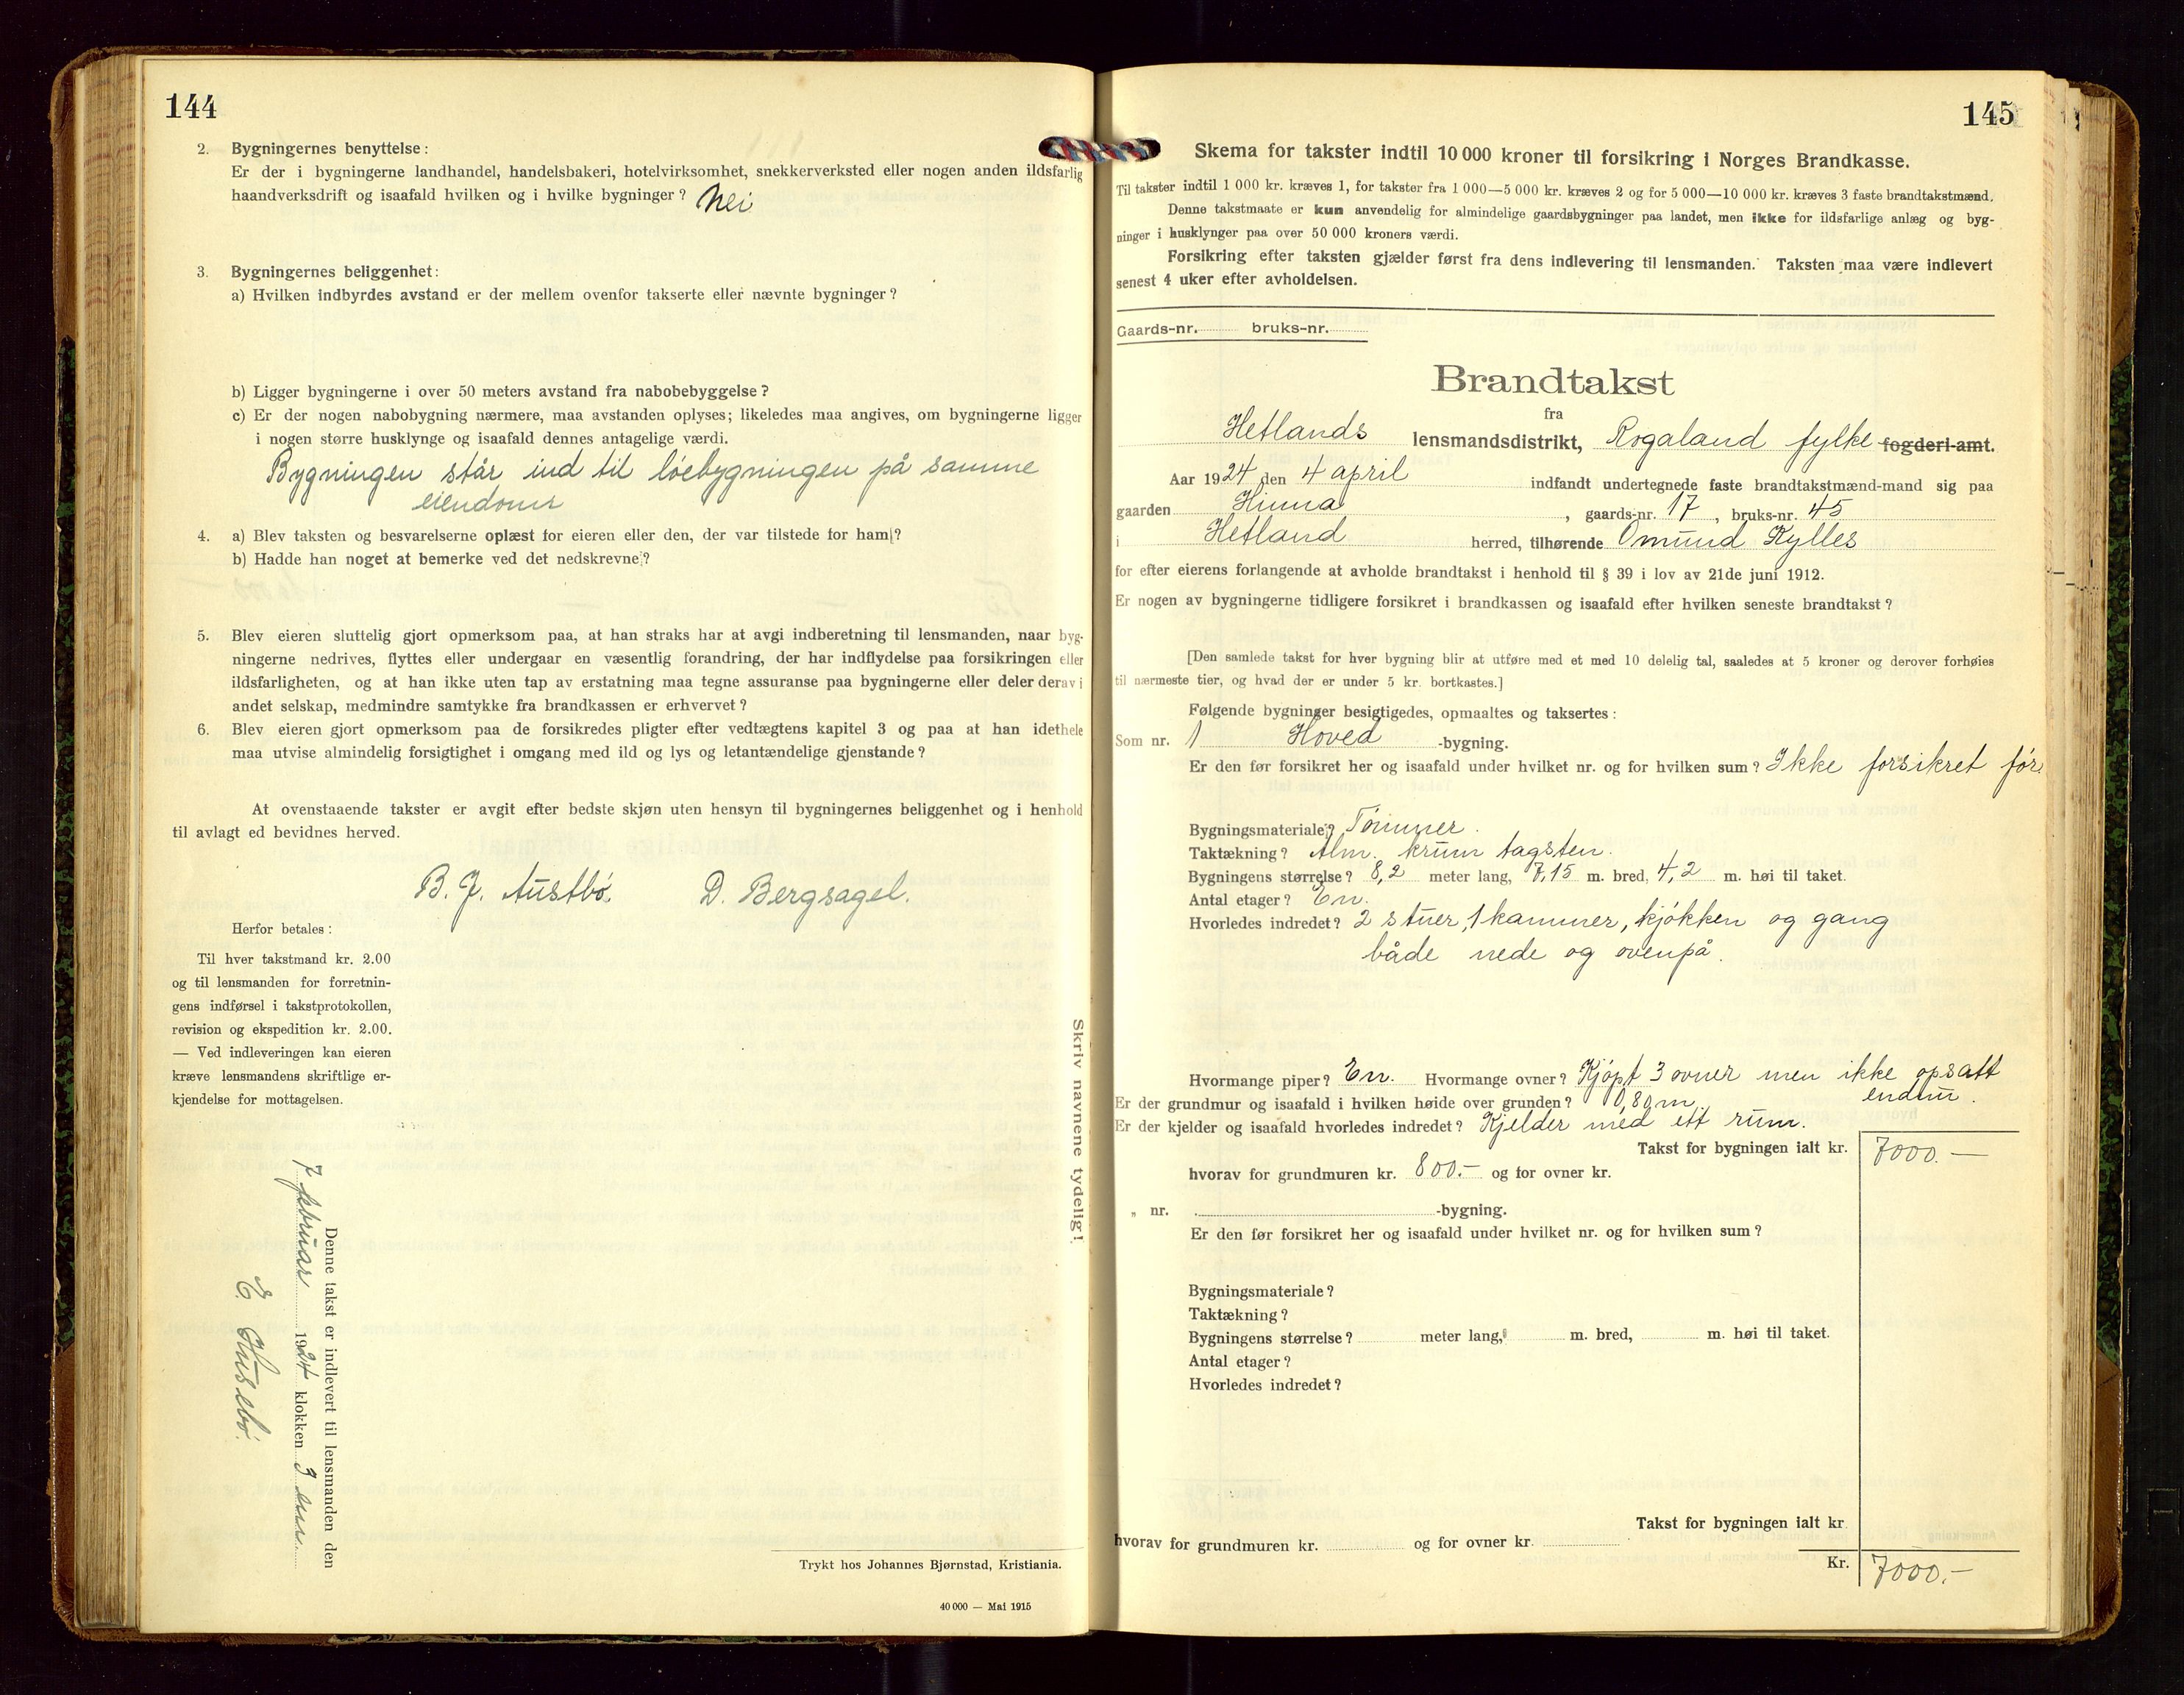 144
2. Bygningernes benyttelse:
Er der i bygningerne landhandel, handelsbakeri, hotelvirksomhet, snekkerverksted eller nogen anden ildsfarlig
haandverksdrift og isaafald hvilken og i hvilke bygninger? Nei
3. Bygningernes beliggenhet:
a) Hvilken indbyrdes avstand er der mellem ovenfor takserte eller nævnte bygninger?
b) Ligger bygningerne i over 50 meters avstand fra nabobebyggelse?
c) Er der nogen nabobygning nærmere, maa avstanden oplyses; likeledes maa angives, om bygningerne ligger
i nogen større husklynge og isaafald dennes antagelige værdi.
Bygningen står ind til löebygningen på samme
eiendom
4. a) Blev taksten og besvarelserne oplæst for eieren eller den, der var tilstede for ham?
b) Hadde han noget at bemerke ved det nedskrevne?
5. Blev eieren sluttelig gjort opmerksom paa, at han straks har at avgi indberetning til lensmanden, naar byg-
ningerne nedrives, flyttes eller undergaar en væsentlig forandring, der har indflydelse paa forsikringen eller
ildsfarligheten, og at han ikke uten tap av erstatning maa tegne assuranse paa bygningerne eller deler derav i
andet selskap, medmindre samtykke fra brandkassen er erhvervet?
6. Blev eieren gjort opmerksom paa de forsikredes pligter efter vedtægtens kapitel 3 og paa at han idethele
maa utvise almindelig forsigtighet i omgang med ild og lys og letantændelige gjenstande?
At ovenstaaende takster er avgit efter bedste skjøn uten hensyn til bygningernes beliggenhet og i henhold
til avlagt ed bevidnes herved.
B. J. Austbö. D. Bergsagel.
Herfor betales:
Til hver takstmand kr. 2.00
og til lensmanden for forretnin-
gens indførsel i takstprotokollen,
revision og ekspedition kr. 2.00.
— Ved indleveringen kan eieren
kræve lensmandens skriftlige er-
kjendelse for mottagelsen.
Denne takst er indlevert til lensmanden den
7 februar 1924 klokken 3 em.
E. Husebö.
Skriv navnene tydelig!
Trykt hos Johannes Bjørnstad, Kristiania.
40 000 — Mai 1915
145
Skema for takster indtil 10 000 kroner til forsikring i Norges Brandkasse.
Til takster indtil 1 000 kr. kræves 1, for takster fra 1 000—5 000 kr. kræves 2 og for 5 000—10 000 kr. kræves 3 faste brandtakstmænd.
Denne takstmaate er kun anvendelig for almindelige gaardsbygninger paa landet, men ikke for ildsfarlige anlæg og byg-
ninger i husklynger paa over 50 000 kroners værdi.
Forsikring efter taksten gjælder først fra dens indlevering til lensmanden. Taksten maa være indlevert
senest 4 uker efter avholdelsen.
Gaards-nr. bruks-nr.
Brandtakst
fra
Hetlands lensmandsdistrikt, Rogaland fylke fogderi-amt.
Aar 1924 den 4 april indfandt undertegnede faste brandtakstmænd-mand sig paa
gaarden Hinna, gaards-nr. 17, bruks-nr. 45
i Hetland herred, tilhørende Omund Kylles
for efter eierens forlangende at avholde brandtakst i henhold til § 39 i lov av 21de juni 1912.
Er nogen av bygningerne tidligere forsikret i brandkassen og isaafald efter hvilken seneste brandtakst?
[Den samlede takst for hver bygning blir at utføre med et med 10 delelig tal, saaledes at 5 kroner og derover forhøies
til nærmeste tier, og hvad der er under 5 kr. bortkastes.]
Følgende bygninger besigtigedes, opmaaltes og taksertes:
Som nr. 1 Hoved -bygning.
Er den før forsikret her og isaafald under hvilket nr. og for hvilken sum? Ikke forsikret för
Bygningsmateriale? Tömmer.
Taktækning? Alm. krum tagsten.
Bygningens størrelse? 8,2 meter lang, 7,15 m. bred, 4,2 m. høi til taket.
Antal etager? En.
Hvorledes indredet? 2 stuer, 1 kammer, kjökken og gang
både nede og ovenpå.
Hvormange piper? En. Hvormange ovner? Kjöpt 3 ovner men ikke opsatt
endnu.
Er der grundmur og isaafald i hvilken høide over grunden? 0,80 m
Er der kjelder og isaafald hvorledes indredet? Kjelder med ett rum.
Takst for bygningen ialt kr. 7000.—
hvorav for grundmuren kr. 800.- og for ovner kr.
„ nr. -bygning.
Er den før forsikret her og isaafald under hvilket nr. og for hvilken sum?
Bygningsmateriale?
Taktækning?
Bygningens størrelse? meter lang, m. bred, m. høi til taket.
Antal etager?
Hvorledes indredet?
Takst for bygningen ialt kr.
hvorav for grundmuren kr. og for ovner kr.
Kr. 7000.—